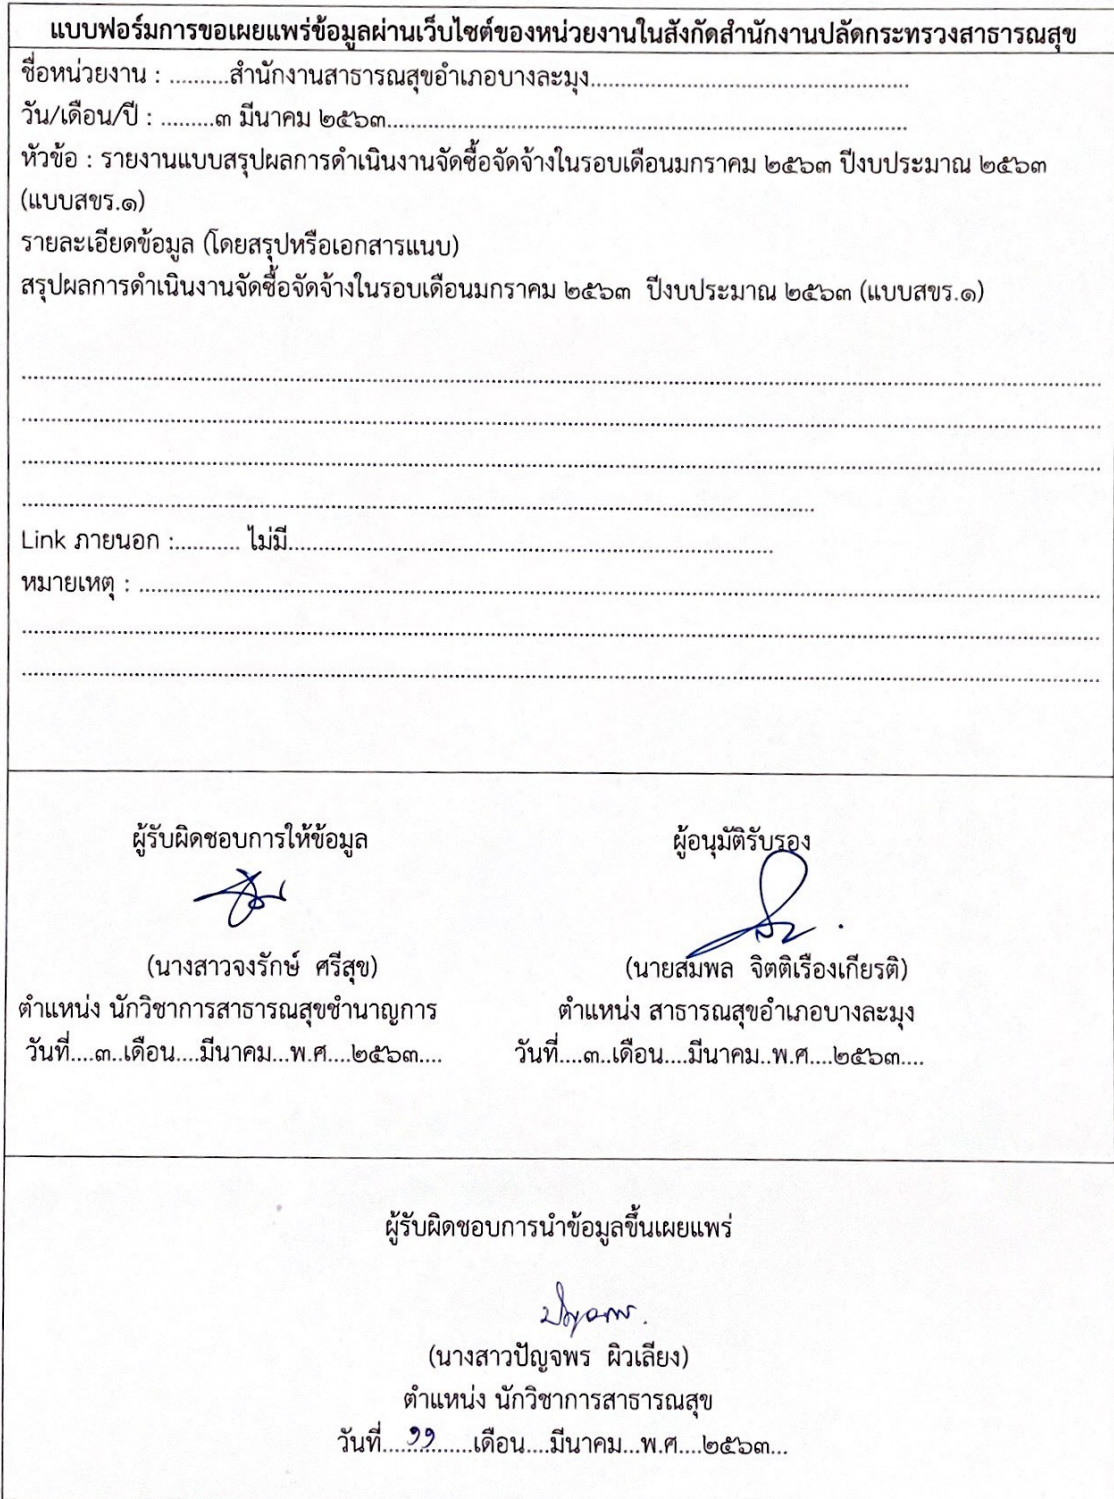 แบบฟอร์มการขอเผยแพร่ข้อมูลผ่านเว็บไซต์ของหน่วยงานในสังกัดสำนักงานปลัดกระทรวงสาธารณสุข
ชื่อหน่วยงาน : ..........สำนักงานสาธารณสุขอำเภอบางละมุง.....................................................
วัน/เดือน/ปี : .........๓ มีนาคม ๒๕๖๓.......................................................................................
หัวข้อ : รายงานแบบสรุปผลการดำเนินงานจัดซื้อจัดจ้างในรอบเดือนมกราคม ๒๕๖๓ ปีงบประมาณ ๒๕๖๓
(แบบสขร.๑)
รายละเอียดข้อมูล (โดยสรุปหรือเอกสารแนบ)
สรุปผลการดำเนินงานจัดซื้อจัดจ้างในรอบเดือนมกราคม ๒๕๖๓ ปีงบประมาณ ๒๕๖๓ (แบบสขร.๑)
Link ภายนอก :........... ไม่มี.................................................................................
หมายเหตุ : ................................................................................................
ผู้รับผิดชอบการให้ข้อมูล ผู้อนุมัติรับรอง
(นางสาวจงรักษ์ ศรีสุข) (นายสมพล จิตติเรืองเกียรติ)
ตำแหน่ง นักวิชาการสาธารณสุขชำนาญการ ตำแหน่ง สาธารณสุขอำเภอบางละมุง
วันที่....๓..เดือน....มีนาคม...พ.ศ....๒๕๖๓.... วันที่....๓..เดือน....มีนาคม..พ.ศ....๒๕๖๓....
ผู้รับผิดชอบการนำข้อมูลขึ้นเผยแพร่
ปัญจพร.
(นางสาวปัญจพร ผิวเลียง)
ตำแหน่ง นักวิชาการสาธารณสุข
วันที่....๑๑......เดือน....มีนาคม...พ.ศ....๒๕๖๓...